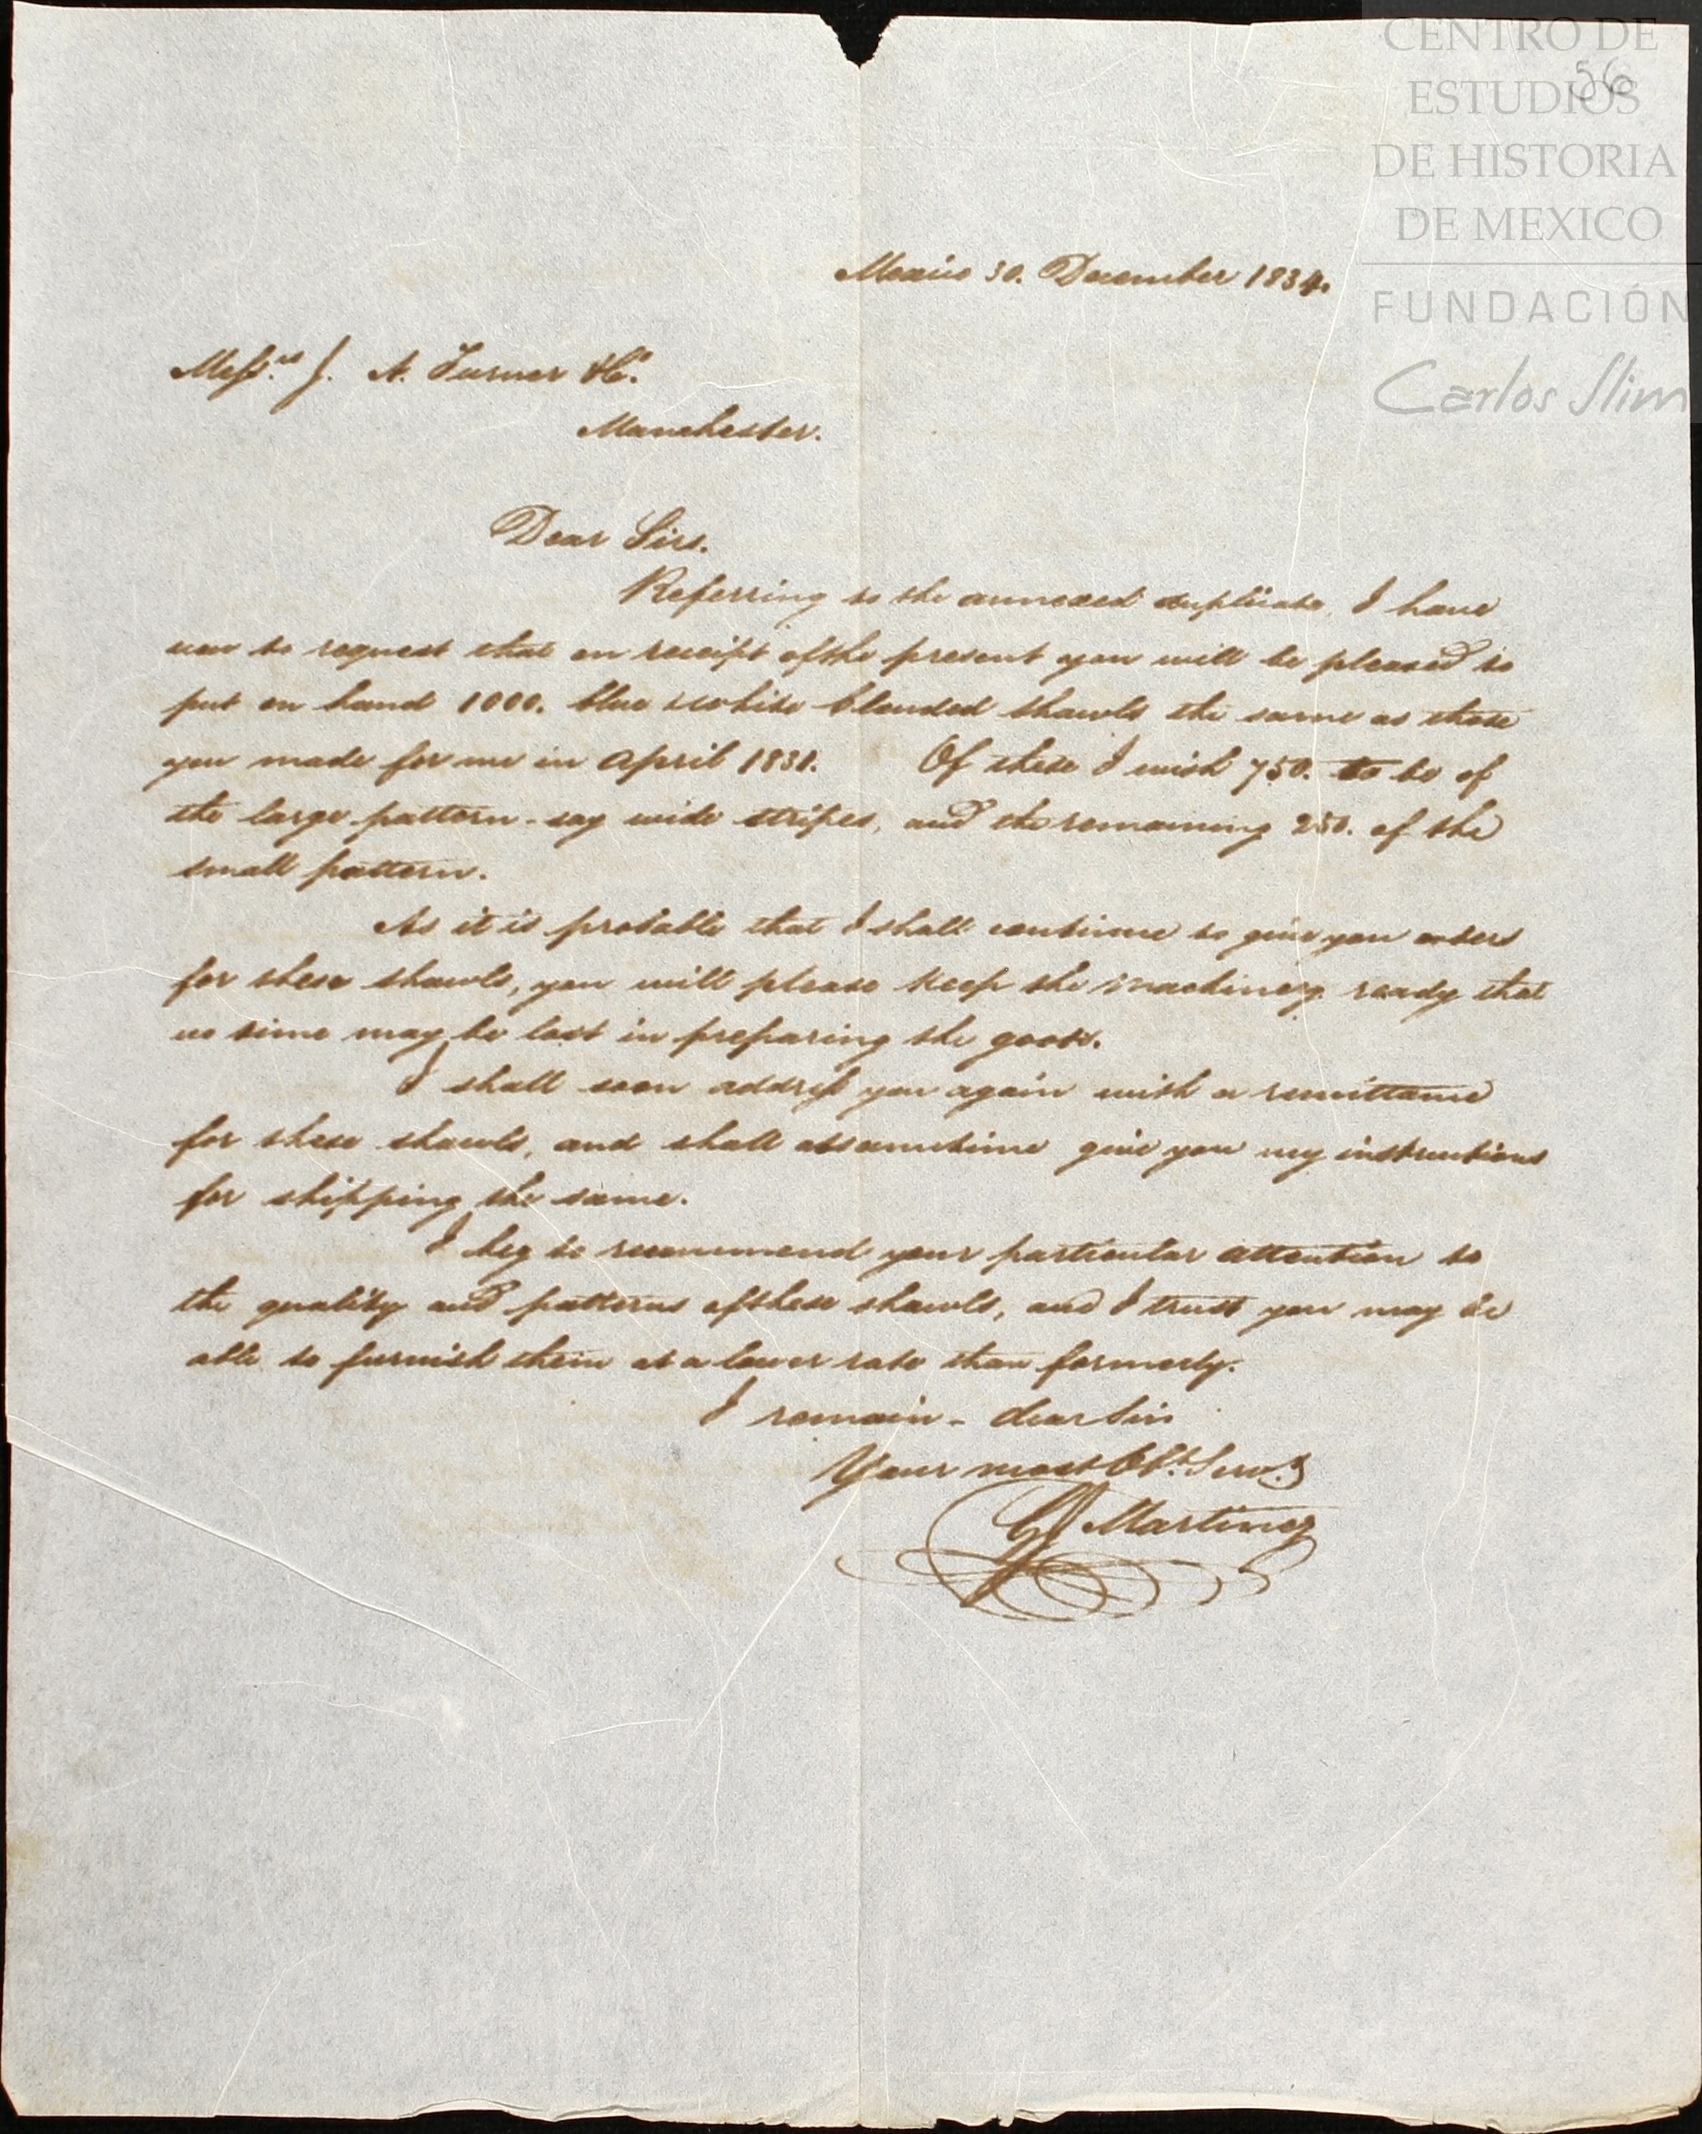 CENTRO DE
ESTUDIOS
DE HISTORIA
DE MEXICO
FUNDACIÓN
Carlos Slim
56
Mexico 30. December 1834.
Mess.rs J. A. Turner & Co.
Manchester.
Dear Sirs.
Referring to the annexed duplicate, I have
now to request that on receipt of the present you will be pleased to
put on hand 1000. blue & white clouded shawls the same as those
you made for me in April 1831. Of these I wish 750. to be of
the large pattern - say wide stripes, and the remaining 250. of the
small pattern.
As it is probable that I shall continue to give you orders
for these shawls, you will please keep the machinery ready that
no time may be lost in preparing the goods.
I shall soon address you again with a remittance
for these shawls, and shall at sametime give you my instructions
for shipping the same.
I beg to recommend your particular attention to
the quality and patterns of these shawls, and I trust you may be
able to furnish them at a lower rate than formerly.
I remain - dear Sirs
Your most Obt. Servt.
Martinez